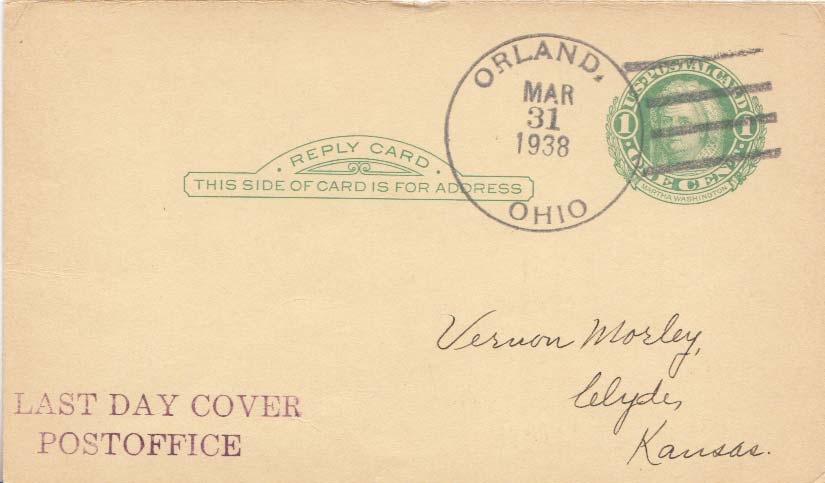 ORLAND,
MAR
31
1938
OHIO
U.S. POSTAL CARD
1 1
ONE CENT
MARTHA WASHINGTON
· REPLY CARD ·
THIS SIDE OF CARD IS FOR ADDRESS
Vernon Morley,
Clyde,
Kansas.
LAST DAY COVER
POSTOFFICE